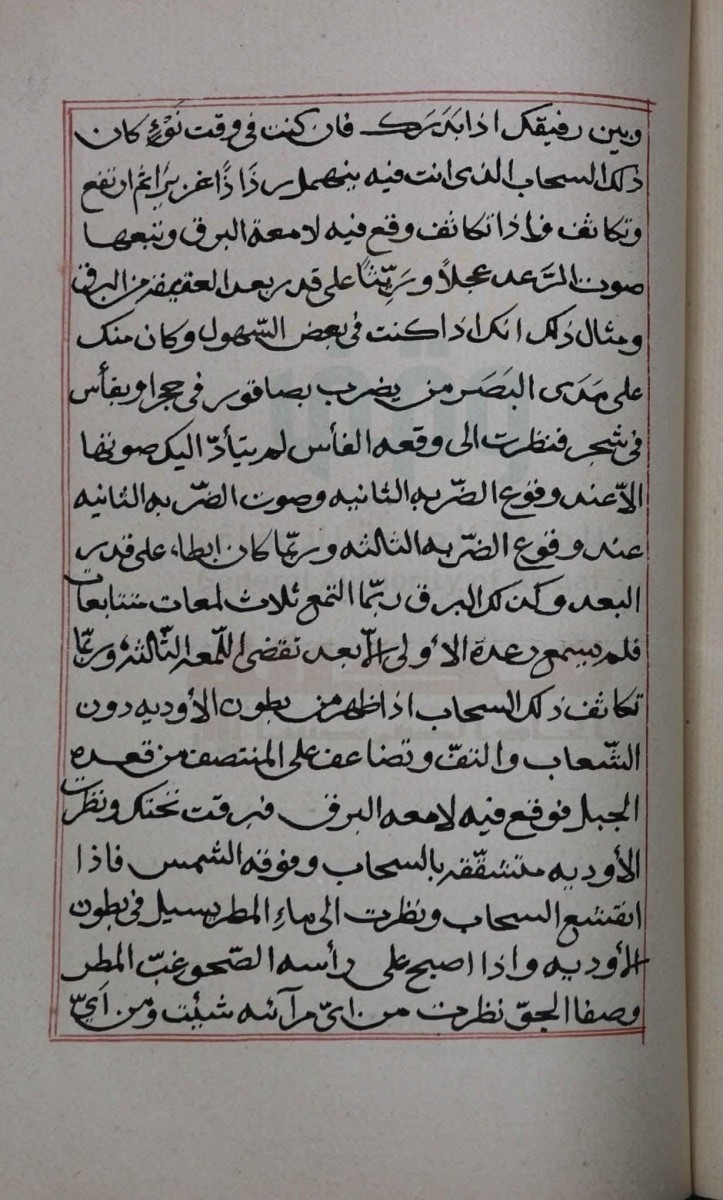 وبين رفيقك اذا بدَرَك فان كنت فى وقت نَوْءٍ كان
ذلك السحاب الذى انت فيه ينهمل رذَاذًا غزيرًا ثم ارتفع
وتكاثف فاذا تكاثف وقع فيه لامعة البرق وتبعها
صوت الرَّعد عجلاً ورَيّثًا على قدر بعد العقيقه من البرق
ومثال ذلك انك اذا كنت فى بعض السّهول وكان منك
على مَدَى البَصَر من يضرب بصاقور فى حجر او بفأس
فى شجر فنظرت الى وقعه الفأس لم يتأدّ اليك صوتها
الاّ عند وقوع الضّربه الثانيه وصوت الضّربه الثانيه
عند وقوع الضّربه الثالثه وربّما كان ابطاء على قدر
البعد وكذلك البرق ربّما التمع ثلاث لمعات متتابعات
فلم يسمع رعدة الاولى الاّ بعد تقضى اللّمعه الثّالثه وربّما
تكاثف ذلك السحاب اذا ظهر من بطون الأوديه دون
الشّعاب والتفّ وتضاعف على المنتصف من قعده
الجبل فوقع فيه لامعه البرق فبرقت تحتك ونظرت
الأوديه متشقّقه بالسحاب وفوقه الشمس فاذا
انقشع السحاب ونظرت الى ماء المطر يسيل فى بطون
الأوديه واذا اصبح على رأسه الصّحو غبّ المطر
وصفا الجوّ نظرت من اىّ مرآئه شئت ومن أىّ